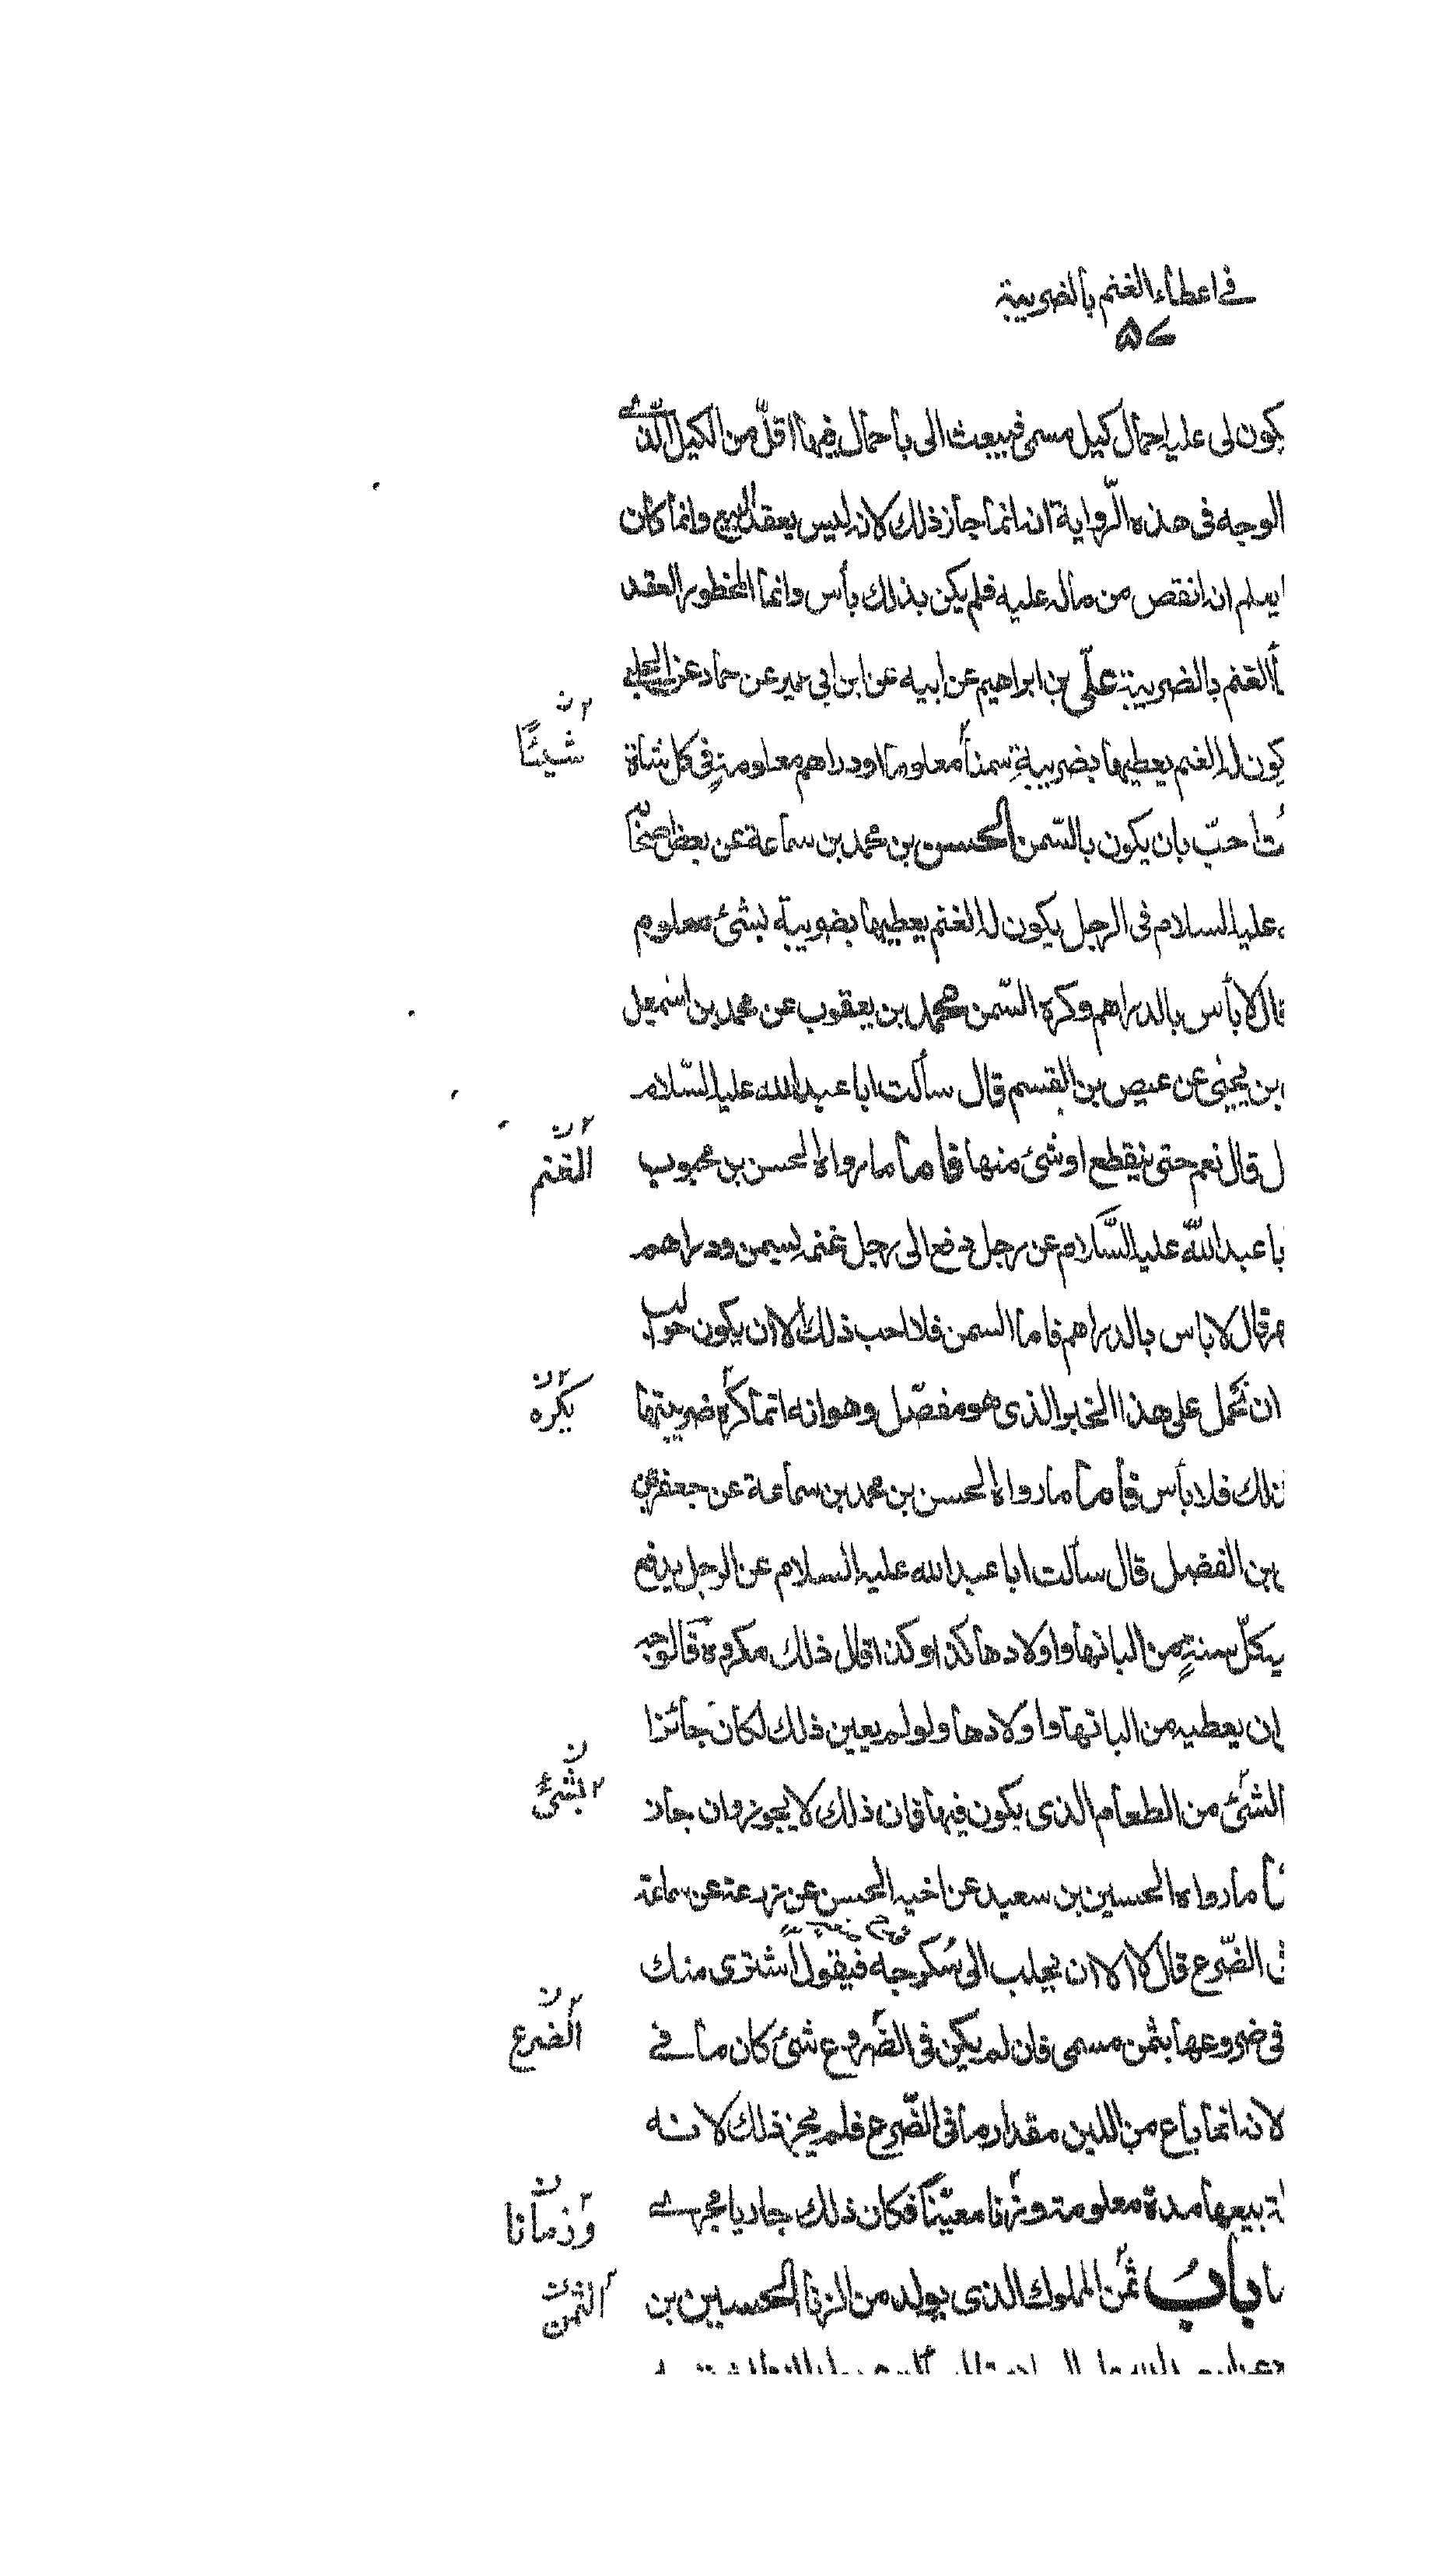 في اعطاء الغنم بالضريبة
يكون لي عليه احمال كيل مسمى فيبعث الى باحمال فيها اقلّ من الكيل الذي
الوجه في هذه الرّواية انه انما جاز ذلك لانه ليس يعقد البيع وانما كان
يعلم انه انقص من ماله عليه فلم يكن بذلك بأس وانما المحظور العقد
الغنم بالضريبة علّي بن ابراهيم عن ابيه عن ابن ابي عمير عن حماد عن الحلبي
شيئًا
يكون له الغنم يعطيها بضريبةٍ سمنا معلوما او دراهم معلومةٍ في كل شاة
احبّ بان يكون بالسّمن الحسن بن محمد بن سماعة عن بعض اصحابه
عليه السلام في الرجل يكون له الغنم يعطيها بضريبة لبشئ معلوم
قال لا بأس بالدراهم وكره السّمن محمد بن يعقوب عن محمد بن اسمعيل
بن يحيى عن عيص بن القسم قال سألت ابا عبدالله عليه السّلام
الغنم
ل قال نعم حتى ينقطع او شئ منها فاما ما رواه الحسن بن محبوب
با عبدالله عليه السَّلام عن رجل دفع الى رجل غنمه لسمن ودراهم
هم قال لا باس بالدراهم فاما السمن فلا احب ذلك الا ان يكون حوالب
يكره
ان نحمل على هذا الخبر الذي هو مفصّل وهو انه انما كره ضريبتها
ذلك فلا بأس فأما ما رواه الحسن بن محمد بن سماعة عن جعفر عن
بن الفضل قال سألت ابا عبدالله عليه السلام عن الرجل يدفع
بكلّ سنةٍ من البانها واولادها كذا وكذا قال ذلك مكروه فالوجه
ان يعطيه من البانها واولادها ولو لم يعين ذلك لكان جائزا
بشئ
الشئ من الطعام الذي يكون فيها فان ذلك لا يجوز وان جاز
ما رواه الحسين بن سعيد عن اخيه الحسن عن زرعة عن سماعة
في الضّرع قال لا الا ان يحلب الى سُكرجه فيقول اشترى منك
الضرع
في ضروعها بثمن مسمى فان لم يكن في الضروع شئ كان ما في
لانه انما باع من اللبن مقدار ما في الضّرع فلم يجز ذلك لانه
وزمانا
بيعها مدة معلومة وزمانا معيّنا فكان ذلك جاريا مجرى
الثمن
باب ثمن المملوك الذي يولد من الزنا الحسين بن